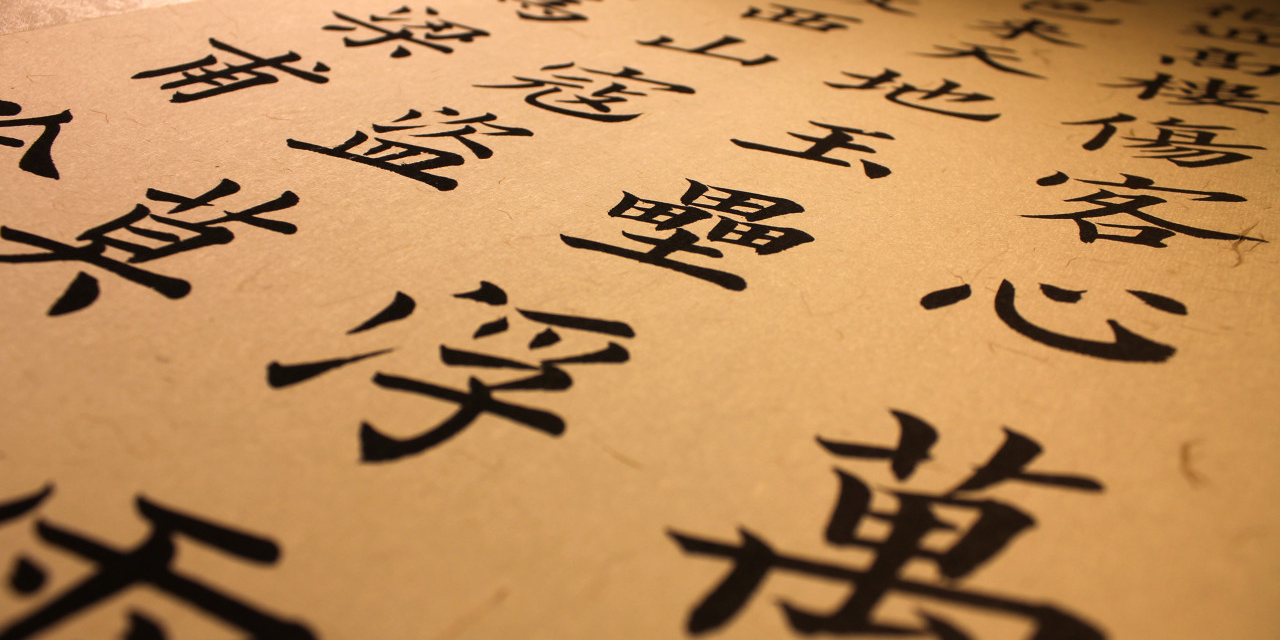 高樓傷客心萬
色來天地玉壘浮
西山寇盜莫
為梁甫